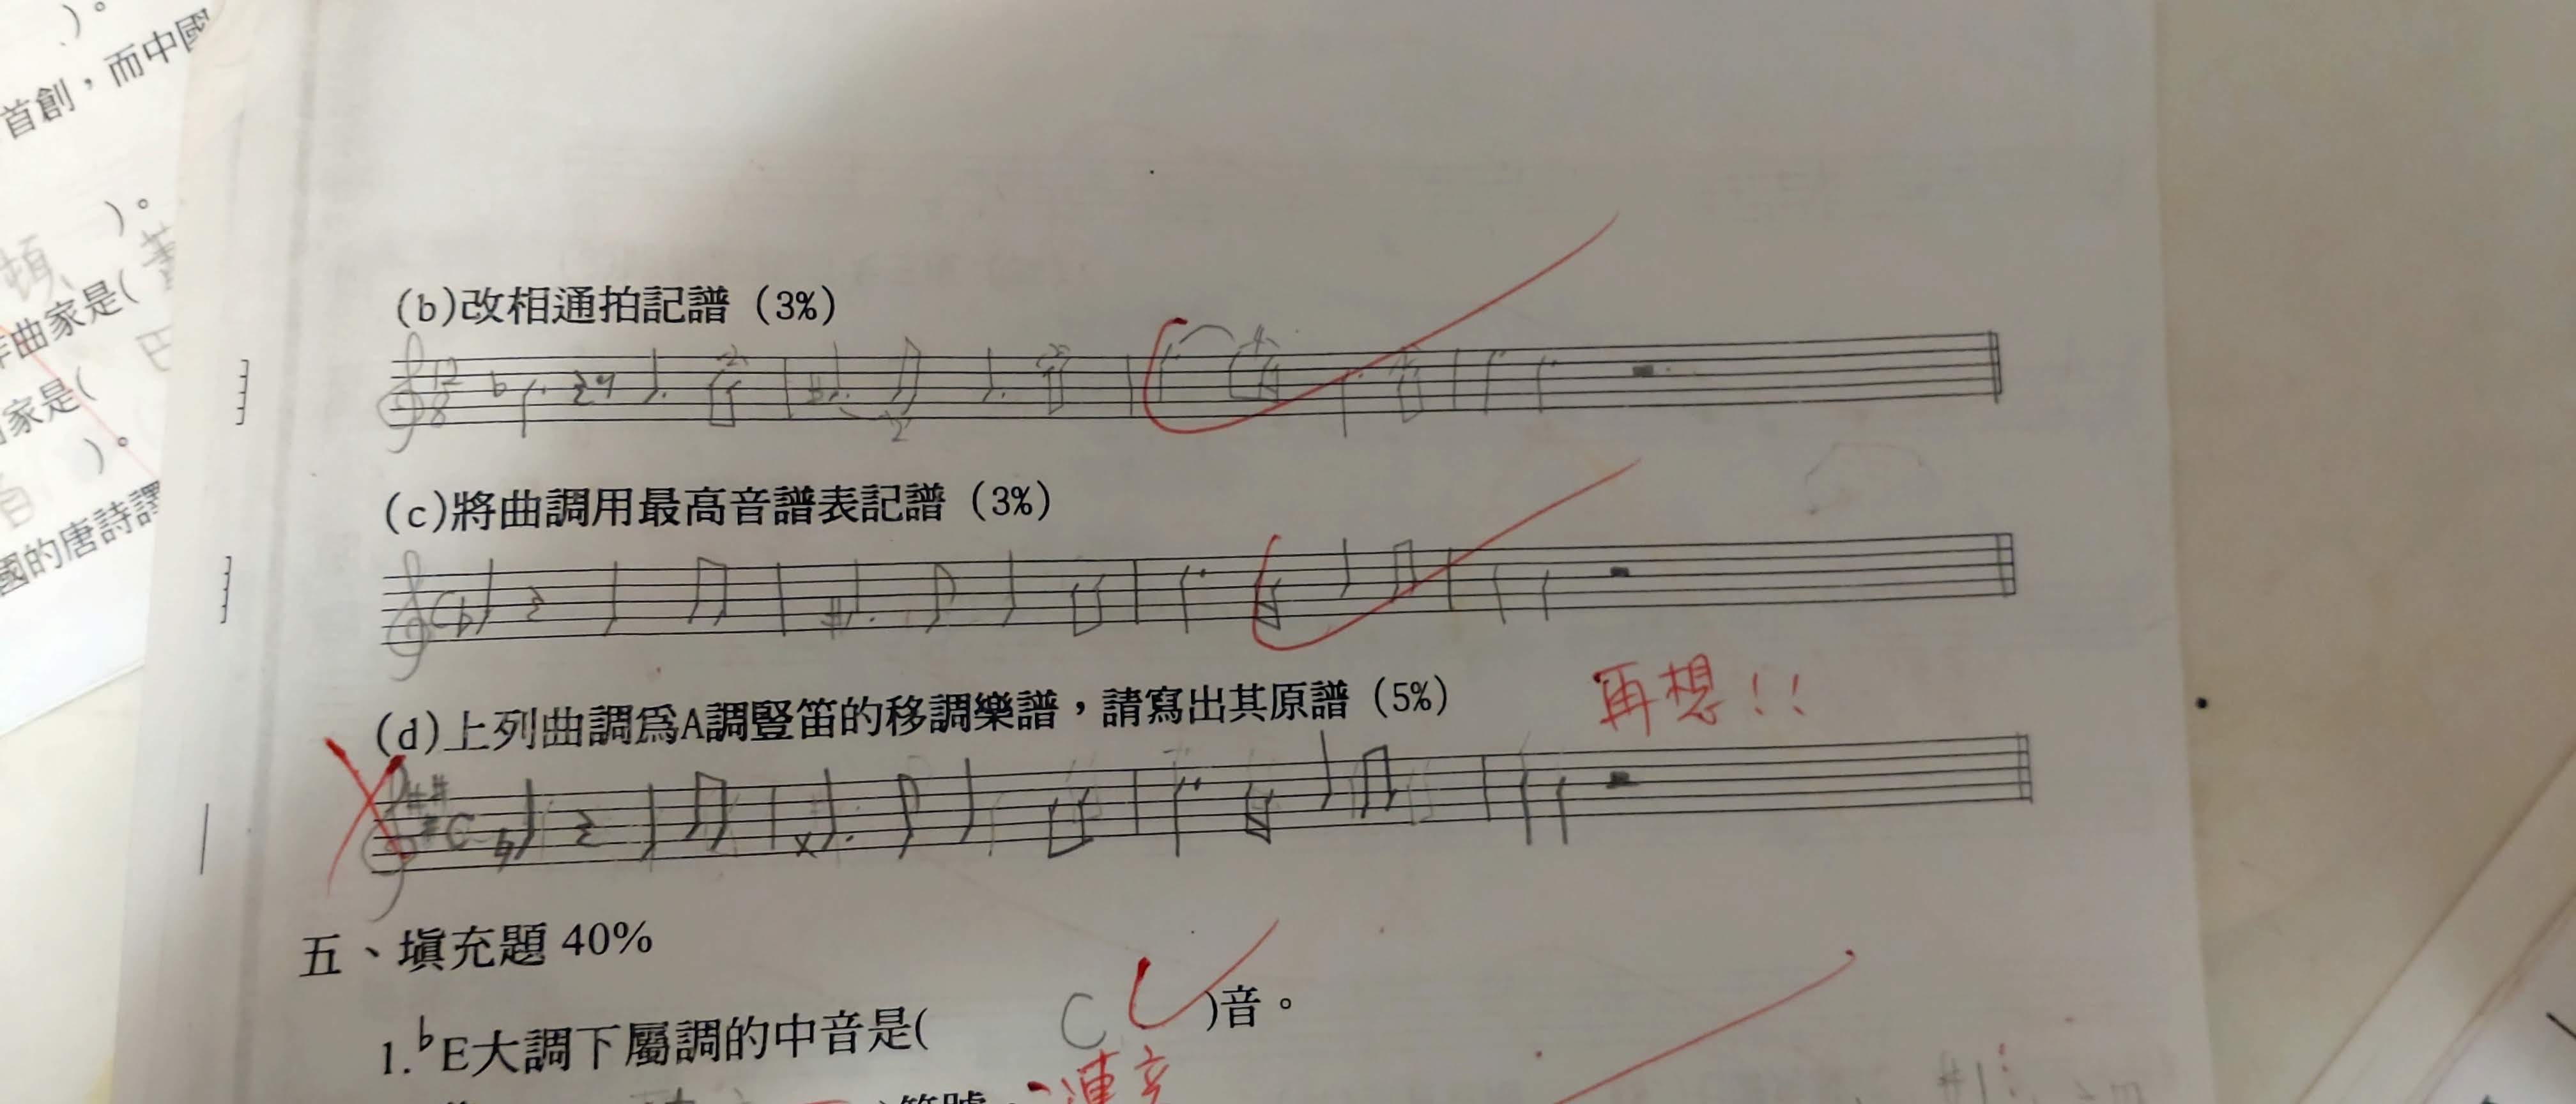 )。
首創，而中國
)。
頓、
作曲家是(
家是(
)。
國的唐詩譯
(b)改相通拍記譜（3%）
12
8
2
2
2
4
(c)將曲調用最高音譜表記譜（3%）
C
再想!!
(d)上列曲調為A調豎笛的移調樂譜，請寫出其原譜（5%）
C
五、填充題 40%
1.♭E大調下屬調的中音是( C )音。
連音